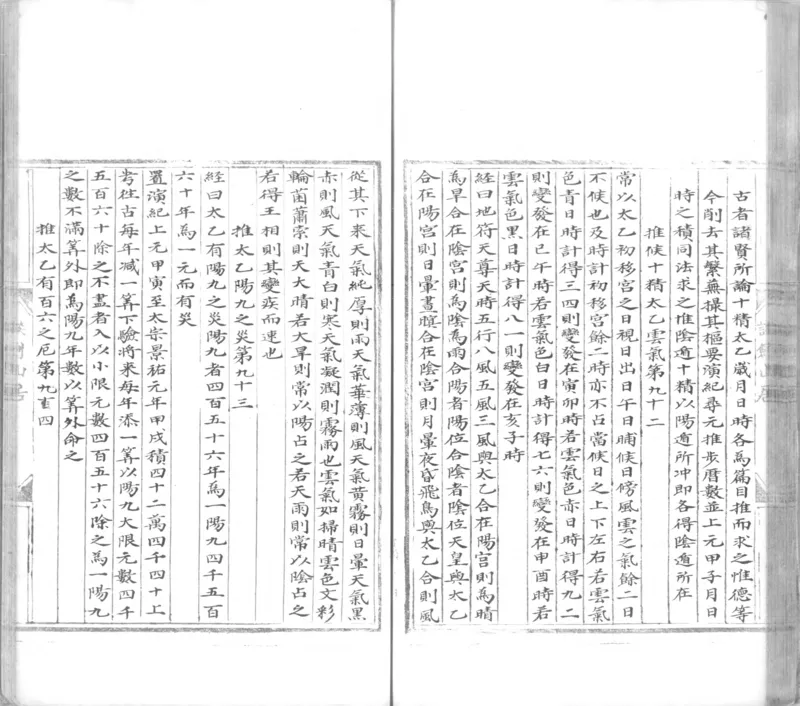 古者諸賢所論十精太乙歲月日時各為篇目推而求之惟德等
今削去其繁蕪撮其樞要演紀尋元推步曆數並上元甲子月日
時之積同法求之惟陰遁十精以陽遁所冲即各得陰遁所在
推候十精太乙雲氣第九十二
常以太乙初移宮之日視日出日午日晡候日傍風雲之氣餘二日
不候也及時計初移宮餘二時亦不占當候日之上下左右若雲氣
色青日時計得三四則變發在寅卯時若雲氣色赤日時計得九二
則變發在巳午時若雲氣色白日時計得七六則變發在申酉時若
雲氣色黑日時計得八一則變發在亥子時
經曰地符天尊天時五行八風五風三風與太乙合在陽宮則為晴
為旱合在陰宮則為陰為雨合陽者陽位合陰者陰位天皇與太乙
合在陽宮則日暈晝瞑合在陰宮則月暈夜昏飛鳥與太乙合則風
從其下來天氣純厚則雨天氣華薄則風天氣黃霧則日暈天氣黑
赤則風天氣青白則寒天氣凝潤則霧雨也雲氣如掃晴雲色文彩
輪菌蕭索則天大晴若大旱則常以陽占之若天雨則常以陰占之
若得王相則其變疾而速也
推太乙陽九之災第九十三
經曰太乙有陽九之災陽九者四百五十六年為一陽九四千五百
六十年為一元而有災
置演紀上元甲寅至太宗景祐元年甲戌積四十二萬四千四十上
考往古每年减一筭下驗將來每年添一筭以陽九大限元數四千
五百六十除之不盡者入以小限元數四百五十六除之為一陽九
之數不滿筭外即為陽九年數以筭外命之
推太乙有百六之厄第九十四